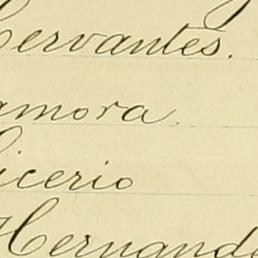 Cervantes.
amora.
icerio
Hernande